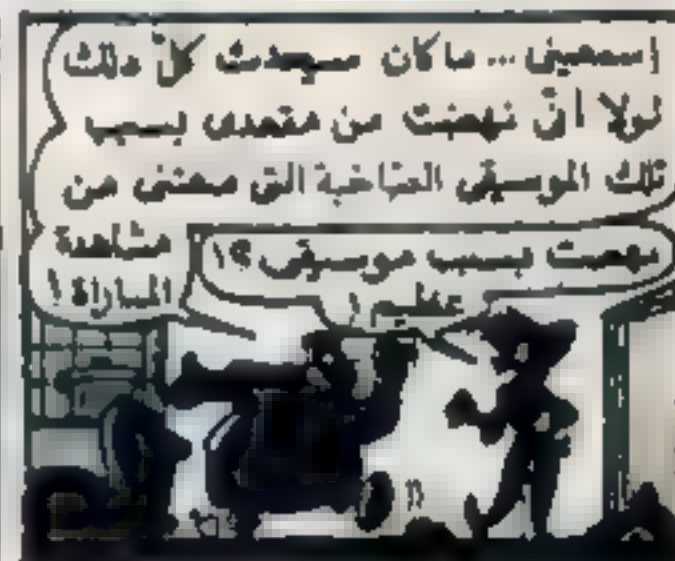 إسمعيني ... ما كان سيحدث كل ذلك
لولا أني نهضت من مقعدي بسبب
تلك الموسيقى الصاخبة التي منعتني من
مشاهدة
المباراة !
نهضت بسبب موسيقى ؟!
عظيم !